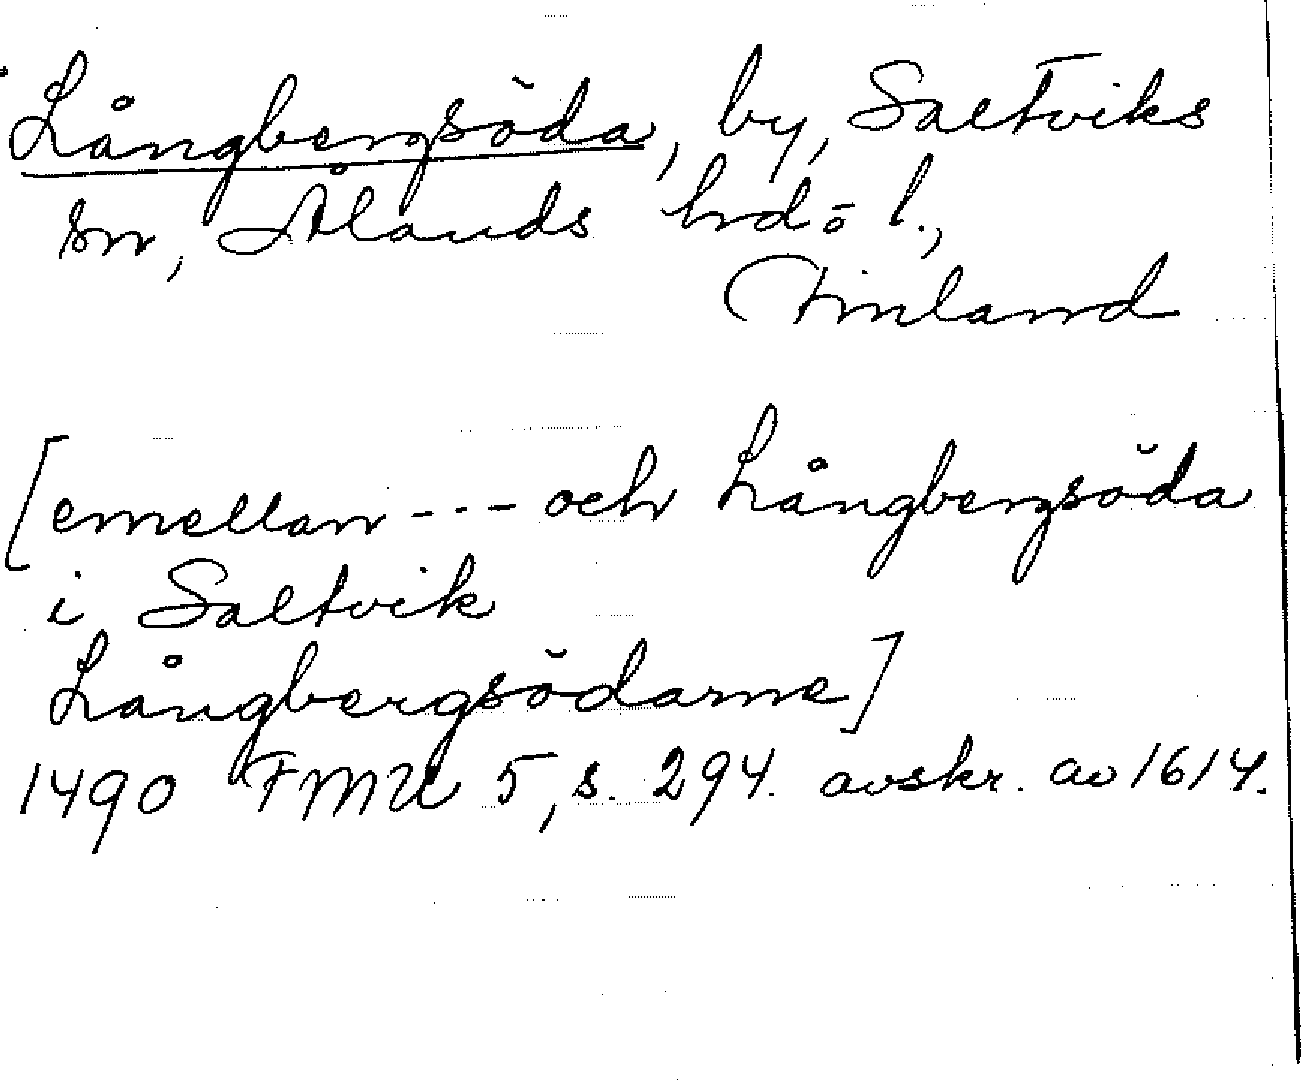 Långbergsöda, by, Saltviks
sn, Ålands hd o l.,
Finland
[emellan --- och Långbergsöda
i Saltvik
Långbergsödarne]
1490 FMU 5, s. 294. avskr. av 1614.